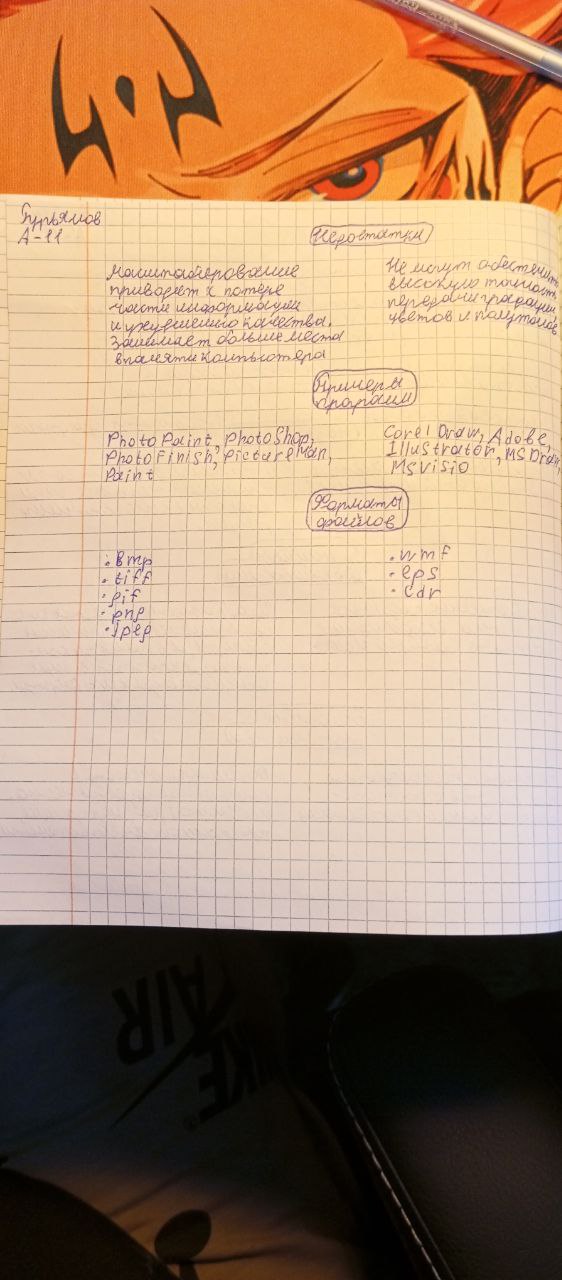 А-11
Недостатки
Масштабирование
приводит к потере
части информации
и ухудшению качества.
Занимает больше места
в памяти компьютера
Не могут обеспечить
высокую точность
передачи градации
цветов и полутонов
Примеры
программ
PhotoPaint, PhotoShop,
PhotoFinish, PictureMan,
Paint
Corel Draw, Adobe,
Illustrator, MS Draw,
MS Visio
Форматы
файлов
· bmp
· tiff
· gif
· png
· jpeg
· wmf
· eps
· cdr
NIKE
AIR